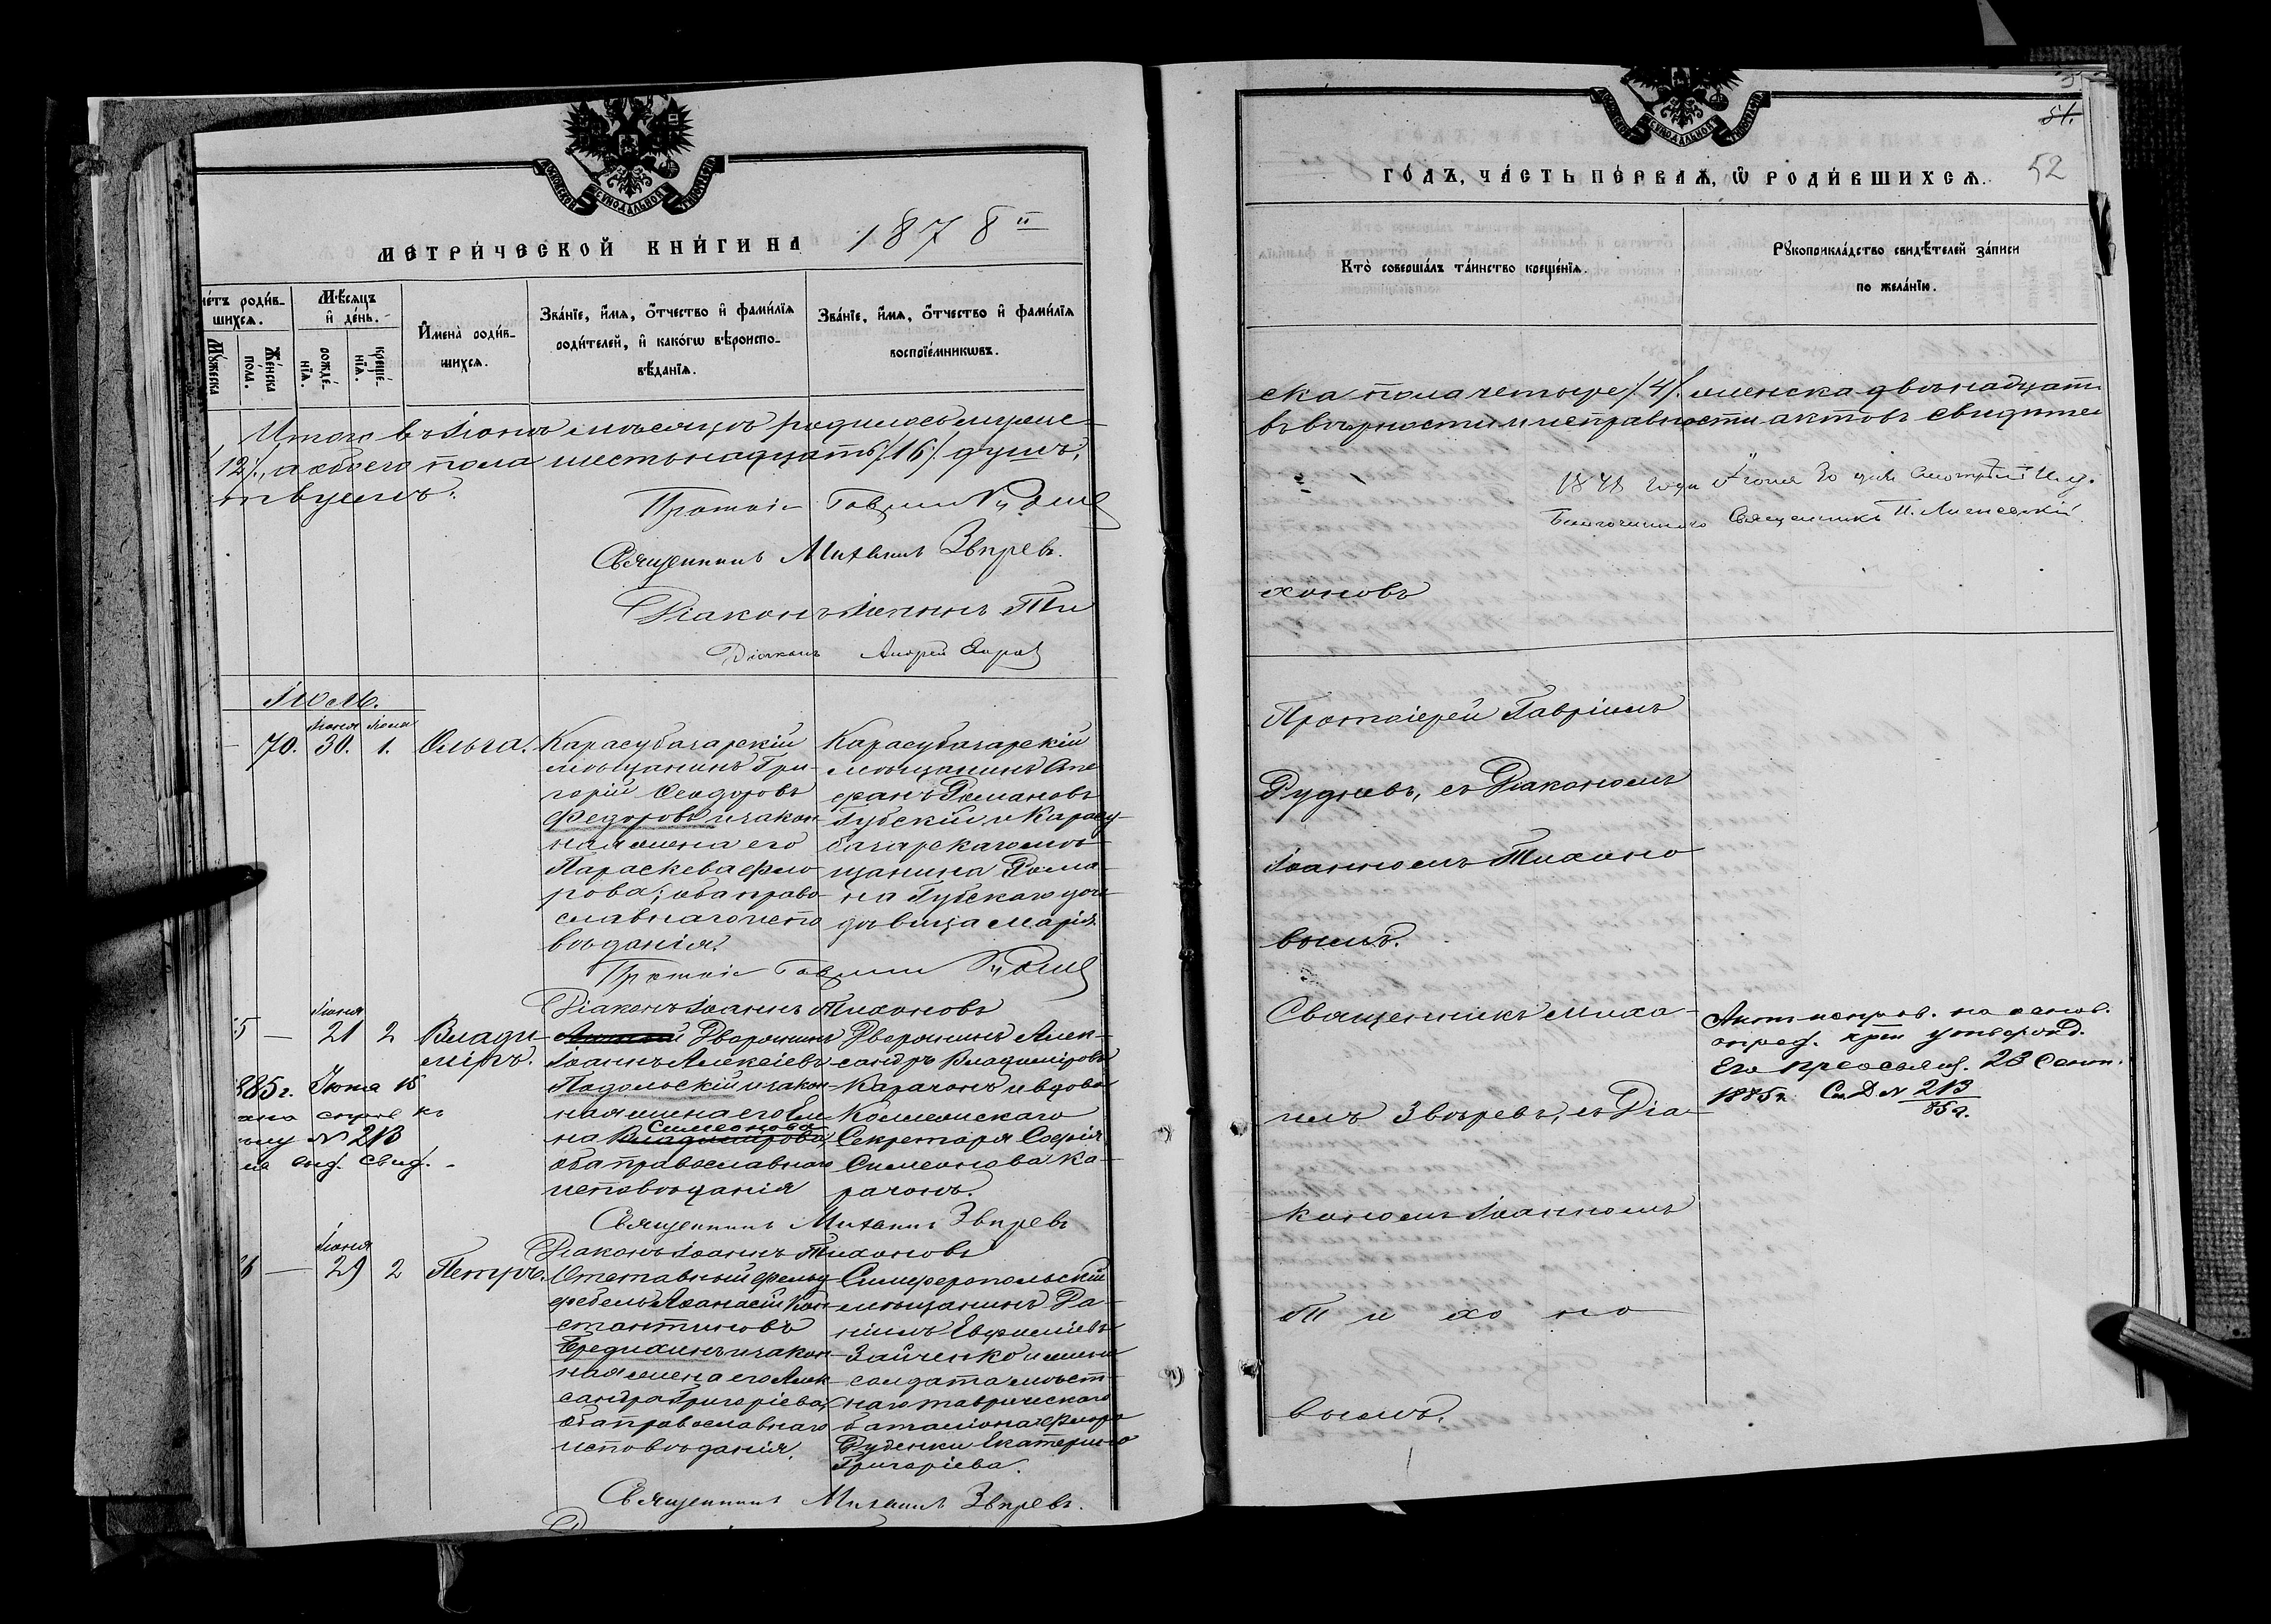 МОСКОВСКОЙ СѴНОДАЛЬНОЙ ТИПОГРАФІИ
МЕТРИЧЕСКОЙ КНИГИ НА 1878 й
Счетъ родив-
шихся.
Мужеска
Женска
пола.
Мѣсяцъ
и день.
рожде-
нія.
креще-
нія.
Имена родив-
шихся.
Званіе, имя, отчество и фамилія
родителей, и какогѡ вѣроиспо-
вѣданія.
Званіе, имя, отчество и фамилія
воспріемникѡвъ.
Итого въ Іюнѣ мѣсяцѣ родилось муже-
12/., а обоего пола шестьнадцать /16/. душъ.
ствуемъ:
Протоіе Гавріил Руднев
Священникъ Михаилъ Звѣревъ.
Діаконъ Іоаннъ Ти
Діаконъ Андрей
Іюль.
Іюня Іюля
70. 30. 1. Ольга.
Карасубазарскій
мѣщанинъ Гри-
горій Ѳеодоровъ
Федоровъ и закон-
ная жена его
Параскева Фло-
рова; оба право-
славнаго испо
вѣданія.
Карасубазарскій
мѣщанинъ Сте
фанъ Романовъ
Губскій и Карасу-
базарскаго мѣ-
щанина Рома-
на Губскаго дочь
дѣвица Марія.
Протоіе Гавріил Руднев
Діаконъ Іоаннъ Тихоновъ
Іюня
5 — 21 2 Влади-
міръ.
Дворянинъ
Іоаннъ Алексіевъ
Подольскій и закон-
ная жена его Еле
Симеонова
на Владимірова
оба православнаго
исповѣданія
Дворянинъ Алек-
сандръ Владиміровъ
Карачонъ и вдова
Коллежскаго
Секретаря Софія
Симеонова Ка-
рачонъ.
885 г. Іюня 15
ано справ къ
лу N 213
на выд. свид.
Священникъ Михаилъ Звѣревъ
Діаконъ Іоаннъ Тихоновъ
Іюня
6 — 29 2 Петръ.
Отставный фельд-
фебель Аѳанасій Кон-
стантиновъ
Бредихинъ и закон-
ная жена его Алек-
сандра Григоріева,
оба православнаго
исповѣданія.
Симферопольскій
мѣщанинъ Да-
ніилъ Евфиміевъ
Зайченко и жена
солдата мѣст-
наго таврическаго
баталіона Флора
Руденки Екатерина
Григоріева.
Священникъ Михаилъ Звѣревъ.
МОСКОВСКОЙ СѴНОДАЛЬНОЙ ТИПОГРАФІИ
51.
52
ГОДЪ, ЧАСТЬ ПЕРВАЯ, Ѡ РОДИВШИХСЯ.
Кто совершалъ таинство крещенія.
Рꙋкоприкладство свидѣтелей записи
по желанію.
ска пола четыре /.4/. женска двѣнадцать
въ вѣрности и исправности актовъ свидѣтел
1878 года Іюля 30 дня
Благочиннаго Священникъ П.
хоновъ
Протоіерей Гавріилъ
Рудневъ, съ Діакономъ
Іоанномъ Тихоно
вымъ.
Священникъ Миха-
илъ Звѣревъ, съ Діа-
кономъ Іоанномъ
Тихоно
вымъ.
Актъ исправ. на основ.
опред. утвержд.
Его преосвящ. 23 Сент.
1885 г. См. Д N 213
85 г.